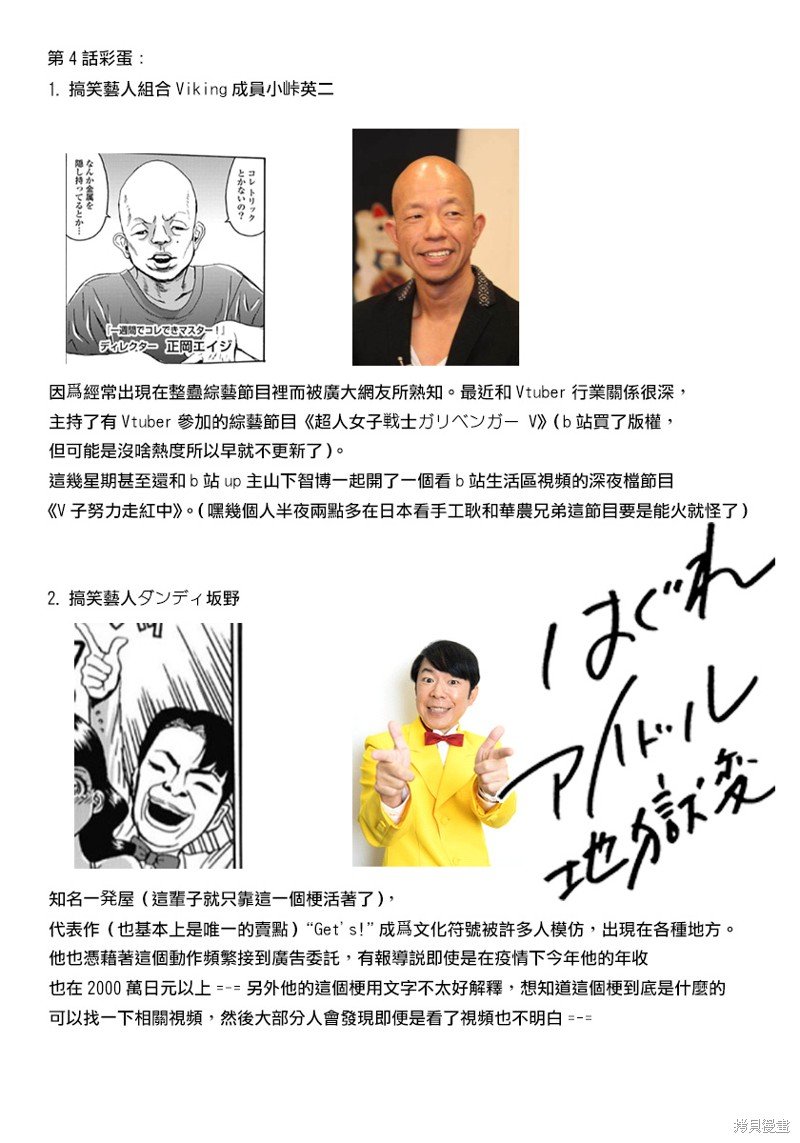 第4話彩蛋：
1. 搞笑藝人組合Viking成員小峠英二
コレトリック
とかないの？
なんか金属を
隠し持ってるとか…
「一週間でコレできマスター！」
ディレクター 正岡エイジ
因爲經常出現在整蠱綜藝節目裡而被廣大網友所熟知。最近和Vtuber行業關係很深，
主持了有Vtuber參加的綜藝節目《超人女子戦士ガリベンガー V》（b站買了版權，
但可能是沒啥熱度所以早就不更新了）。
這幾星期甚至還和b站up主山下智博一起開了一個看b站生活區視頻的深夜檔節目
《V子努力走紅中》。（嘿幾個人半夜兩點多在日本看手工耿和華農兄弟這節目要是能火就怪了）
2. 搞笑藝人ダンディ坂野
はぐれ
アイドル
地獄変
知名一発屋（這輩子就只靠這一個梗活著了），
代表作（也基本上是唯一的賣點）“Get's!”成爲文化符號被許多人模仿，出現在各種地方。
他也憑藉著這個動作頻繁接到廣告委託，有報導説即使是在疫情下今年他的年收
也在2000萬日元以上=-=另外他的這個梗用文字不太好解釋，想知道這個梗到底是什麼的
可以找一下相關視頻，然後大部分人會發現即便是看了視頻也不明白=-=
拷貝漫畫